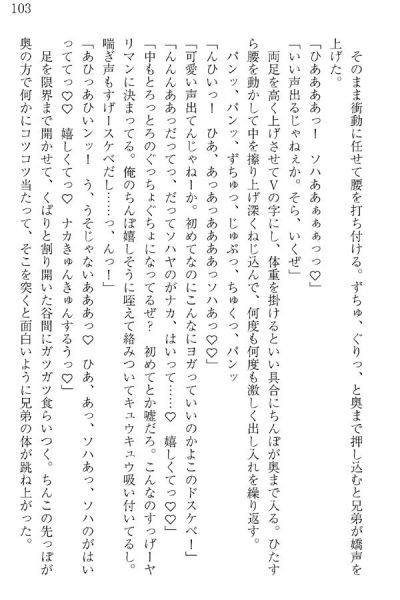 103
そのまま衝動に任せて腰を打ち付ける。ずちゅ、ぐりっ、と奥まで押し込むと兄弟が嬌声を
上げた。
「ひああああっ！　ソハああぁぁぁっっ♡」
「いい声出るじゃねぇか。そら、いくぜ」
両足を高く上げさせてＶの字にし、体重を掛けるといい具合にちんぽが奥まで入る。ひたす
ら腰を動かして中を擦り上げ深くねじ込んで、何度も何度も激しく出し入れを繰り返す。
パンッ、パンッ、ずちゅっ、じゅぷっ、ちゅくっ、パンッ
「んひいっ！　ひあ、あっあっああああっソハあっっ♡」
「可愛い声出てんじゃねーか。初めてなのにこんなにヨガっていいのかよこのドスケベ！」
「んんんああっだってっ、だってソハヤのがナカ、はいって……♡　嬉しくてっ♡♡」
「中もとろっとろのぐっちょぐちょになってるぜ？　初めてとか嘘だろ。こんなのすっげーヤ
リマンに決まってる。俺のちんぽ嬉しそうに咥えて絡みついてキュウキュウ吸い付いてるし。
喘ぎ声もすげースケベだし……っ、んっ！」
「あひっあひいンッ！　う、うそじゃないあああっ♡　ひあ、あっ、ソハあっ、ソハのがはい
っててっ♡♡　嬉しくてっ♡　ナカきゅんきゅんするうっ♡」
足を限界まで開かせて、くぱりと割り開いた谷間にガツガツ食らいつく。ちんこの先っぽが
奥の方で何かにコツコツ当たって、そこを突くと面白いように兄弟の体が跳ね上がった。